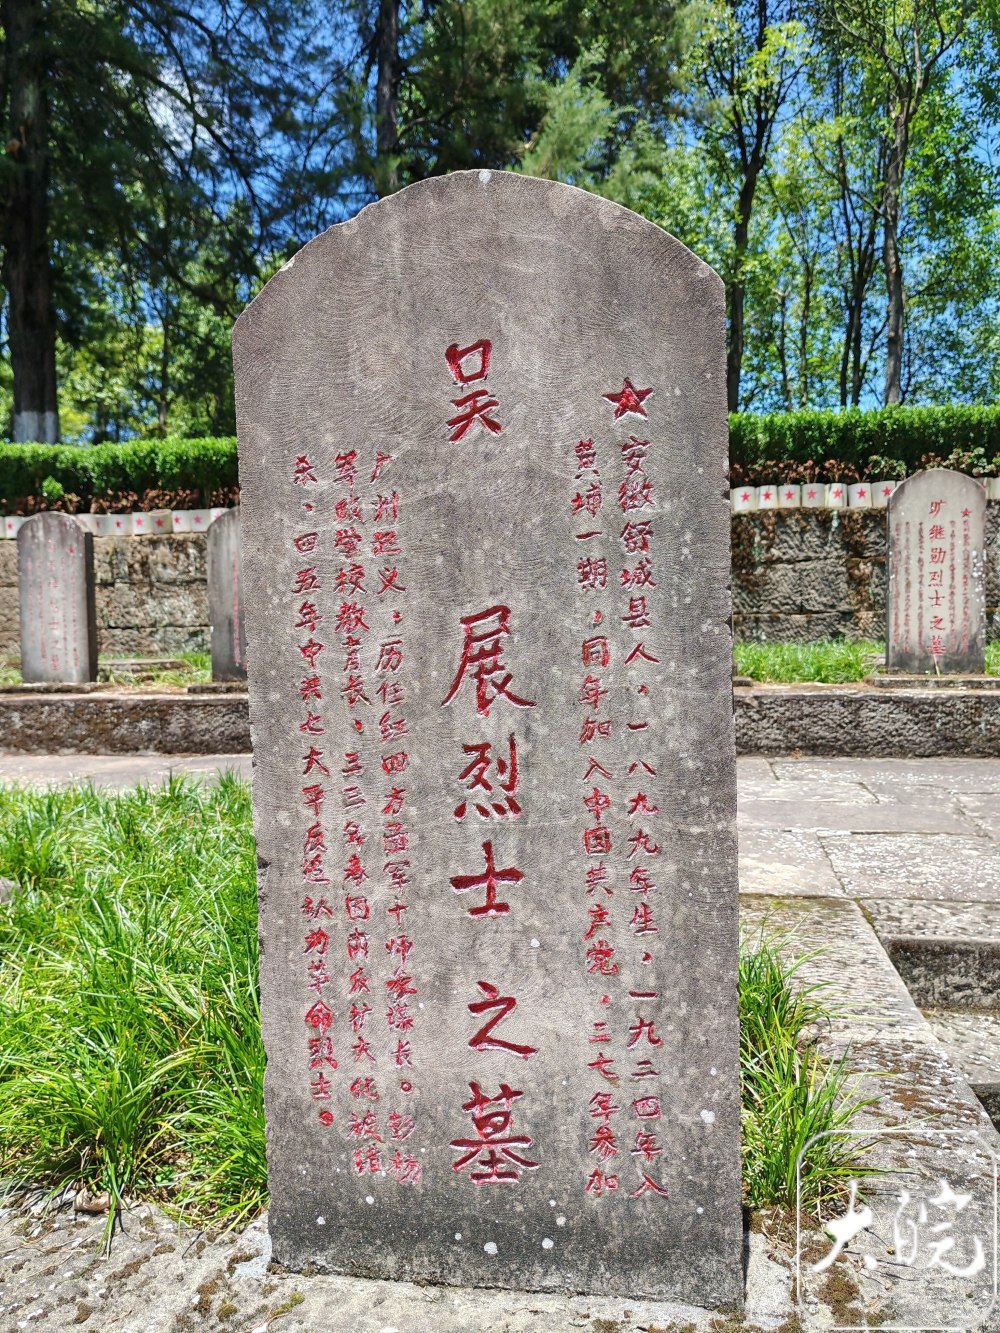 ★安徽舒城县人、一八九九年生、一九二四年入
黄埔一期、同年加入中国共产党、三七年参加
吴展烈士之墓
广州起义、历任红四方面军十师参谋长。彭杨
军政学校教育长、三三年春因肃反扩大化被错
杀、四五年中共七大平反追认为革命烈士。
旷继勋烈士之墓
大皖